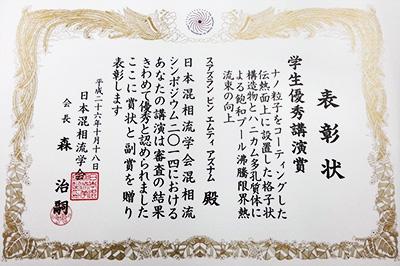 表彰状
学生優秀講演賞
ナノ粒子をコーティングした
伝熱面上に設置した格子状
構造物とハニカム多孔質体に
よる飽和プール沸騰限界熱
流束の向上
スアズラン ビン エムティ アズナム 殿
日本混相流学会混相流
シンポジウム二〇一四における
あなたの講演は審査の結果
きわめて優秀と認められました
ここに賞状と副賞を贈り
表彰します
平成二十六年十月十八日
日本混相流学会
会長 森 治嗣